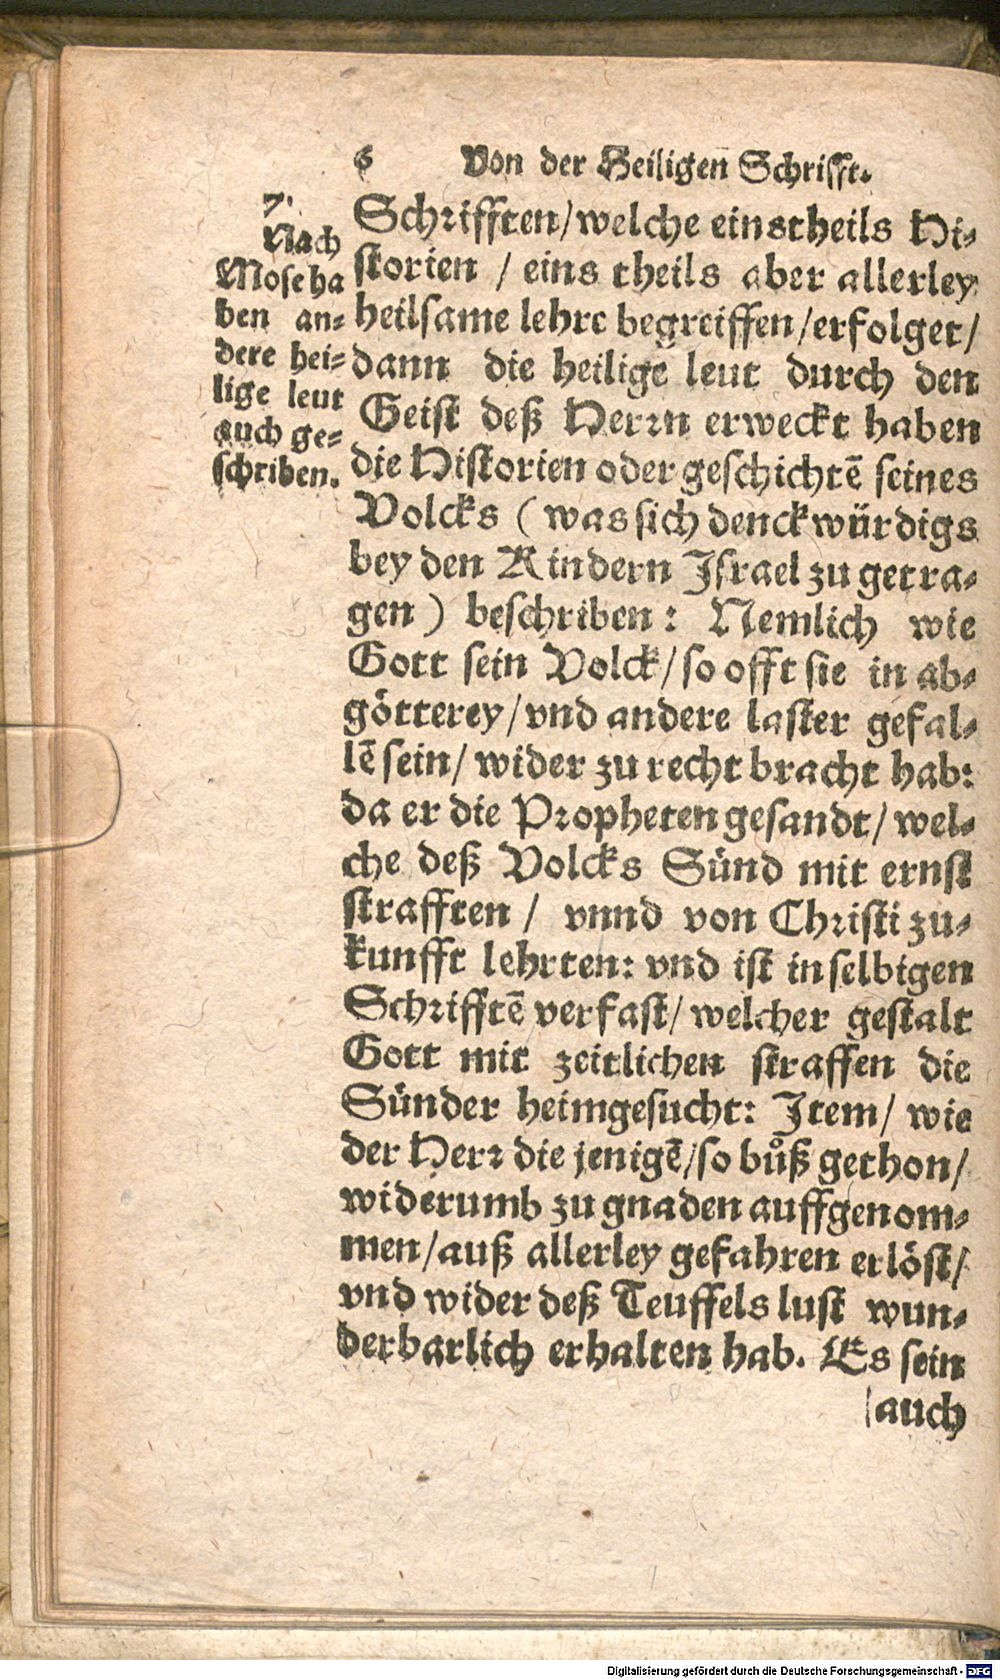 6 Von der Heiligen Schrifft.
7.
Nach
Mose ha
ben an-
dere hei-
lige leut
auch ge-
schriben.
Schrifften/welche einstheils Hi-
storien / eins theils aber allerley
heilsame lehre begreiffen/erfolget/
dann die heilige leut durch den
Geist deß Herrn erweckt haben
die Historien oder geschichtē seines
Volcks (was sich denckwürdigs
bey den Kindern Israel zu getra-
gen) beschriben: Nemlich wie
Gott sein Volck/so offt sie in ab-
götterey/vnd andere laster gefal-
lē sein/ wider zu recht bracht hab:
da er die Propheten gesandt/ wel-
che deß Volcks Sünd mit ernst
strafften / vnnd von Christi zu-
kunfft lehrten: vnd ist in selbigen
Schrifftē verfast/ welcher gestalt
Gott mit zeitlichen straffen die
Sünder heimgesucht: Item/ wie
der Herr die jenigē/so bůß gethon/
widerumb zu gnaden auffgenom-
men/auß allerley gefahren erlöst/
vnd wider deß Teuffels lust wun-
derbarlich erhalten hab. Es sein
auch
Digitalisierung gefördert durch die Deutsche Forschungsgemeinschaft - DFG